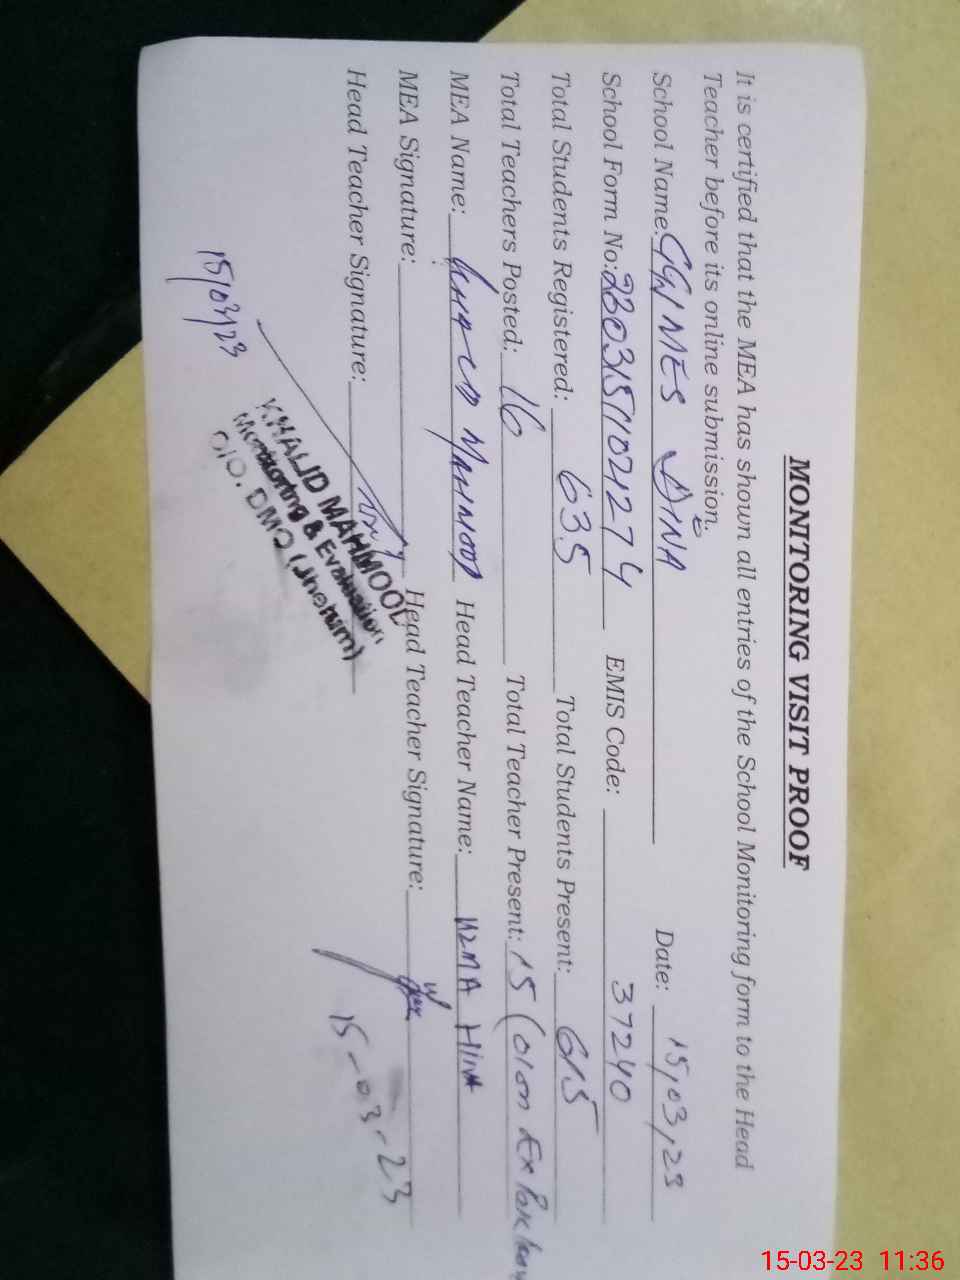 MONITORING VISIT PROOF
It is certified that the MEA has shown all entries of the School Monitoring form to the Head
Teacher before its online submission.
School Name: DINA Date: 15/03/23
School Form No: EMIS Code: 37240
Total Students Registered: 635 Total Students Present: 615
Total Teachers Posted: 16 Total Teacher Present: 15 (01 on
MEA Name: KHALID MAHMOOD Head Teacher Name: UZMA
MEA Signature: Head Teacher Signature:
Head Teacher Signature:
15-03-23
15/03/23
KHALID MAHMOOD
Monitoring & Evaluation
O/O. DMO (Jhelum)
15-03-23 11:36